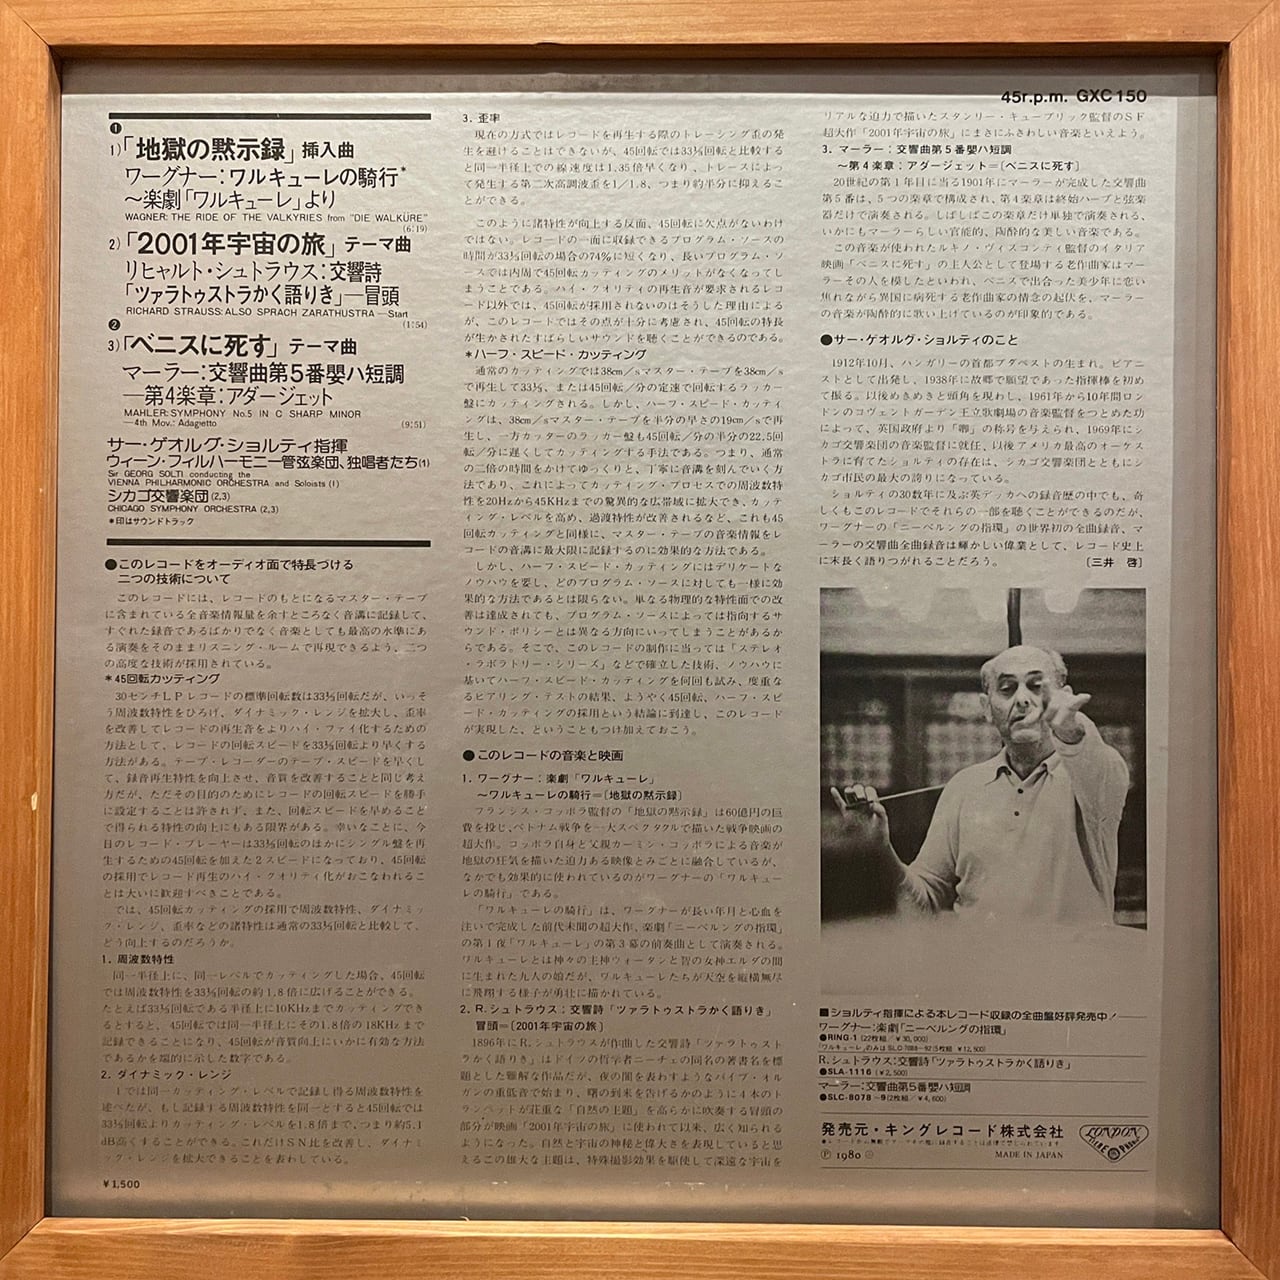 45r.p.m. GXC 150
❶
1)「地獄の黙示録」挿入曲
ワーグナー：ワルキューレの騎行*
〜楽劇「ワルキューレ」より
WAGNER: THE RIDE OF THE VALKYRIES from "DIE WALKÜRE"
(6:19)
2)「2001年宇宙の旅」テーマ曲
リヒャルト・シュトラウス：交響詩
「ツァラトゥストラかく語りき」—冒頭
RICHARD STRAUSS: ALSO SPRACH ZARATHUSTRA—Start
(1:54)
❷
3)「ベニスに死す」テーマ曲
マーラー：交響曲第5番嬰ハ短調
—第4楽章：アダージェット
MAHLER: SYMPHONY No.5 IN C SHARP MINOR
—4th Mov.: Adagietto
(9:51)
サー・ゲオルグ・ショルティ指揮
ウィーン・フィルハーモニー管弦楽団、独唱者たち(1)
Sir GEORG SOLTI conducting the
VIENNA PHILHARMONIC ORCHESTRA and Soloists (1)
シカゴ交響楽団(2,3)
CHICAGO SYMPHONY ORCHESTRA (2,3)
*印はサウンドトラック
●このレコードをオーディオ面で特長づける
二つの技術について
このレコードには、レコードのもとになるマスター・テープ
に含まれている全音楽情報量を余すところなく音溝に記録して、
すぐれた録音であるばかりでなく音楽としても最高の水準にあ
る演奏をそのままリスニング・ルームで再現できるよう、二つ
の高度な技術が採用されている。
*45回転カッティング
30センチLPレコードの標準回転数は33⅓回転だが、いっそ
う周波数特性をひろげ、ダイナミック・レンジを拡大し、歪率
を改善してレコードの再生音をよりハイ・ファイ化するための
方法として、レコードの回転スピードを33⅓回転より早くする
方法がある。テープ・レコーダーのテープ・スピードを早くし
て、録音再生特性を向上させ、音質を改善することと同じ考え
方だが、ただその目的のためにレコードの回転スピードを勝手
に設定することは許されず、また、回転スピードを早めること
で得られる特性の向上にもある限界がある。幸いなことに、今
日のレコード・プレーヤーは33⅓回転のほかにシングル盤を再
生するための45回転を加えた2スピードになっており、45回転
の採用でレコード再生のハイ・クオリティ化がおこなわれるこ
とは大いに歓迎すべきことである。
では、45回転カッティングの採用で周波数特性、ダイナミッ
ク・レンジ、歪率などの諸特性は通常の33⅓回転と比較して、
どう向上するのだろうか。
1. 周波数特性
同一半径上に、同一レベルでカッティングした場合、45回転
では周波数特性を33⅓回転の約1.8倍に広げることができる。
たとえば33⅓回転である半径上に10KHzまでカッティングでき
るとすると、45回転では同一半径上にその1.8倍の18KHzまで
記録できることになり、45回転が音質向上にいかに有効な方法
であるかを端的に示した数字である。
2. ダイナミック・レンジ
1では同一カッティング・レベルで記録し得る周波数特性を
述べたが、もし記録する周波数特性を同一とすると45回転では
33⅓回転よりカッティング・レベルを1.8倍まで、つまり約5.1
dB高くすることができる。これだけSN比を改善し、ダイナミ
ック・レンジを拡大できることを表わしている。
¥1,500
3. 歪率
現在の方式ではレコードを再生する際のトレーシング歪の発
生を避けることはできないが、45回転では33⅓回転と比較すると
同一半径上での線速度は1.35倍早くなり、トレースによっ
て発生する第二次高調波歪を1/1.8、つまり約半分に抑えるこ
とができる。
このように諸特性が向上する反面、45回転に欠点がないわけ
ではない。レコードの一面に収録できるプログラム・ソースの
時間が33⅓回転の場合の74%に短くなり、長いプログラム・ソ
ースでは内周で45回転カッティングのメリットがなくなってし
まうことである。ハイ・クオリティの再生音が要求されるレコ
ード以外では、45回転が採用されないのはそうした理由による
が、このレコードではその点が十分に考慮され、45回転の特長
が生かされたすばらしいサウンドを聴くことができるのである。
*ハーフ・スピード・カッティング
通常のカッティングでは38cm/sマスター・テープを38cm/s
で再生して33⅓、または45回転/分の定速で回転するラッカー
盤にカッティングされる。しかし、ハーフ・スピード・カッティ
ングは、38cm/sマスター・テープを半分の早さの19cm/sで再
生し、一方カッターのラッカー盤も45回転/分の半分の22.5回
転/分に遅くしてカッティングする手法である。つまり、通常
の二倍の時間をかけてゆっくりと、丁寧に音溝を刻んでいく方
法であり、これによってカッティング・プロセスでの周波数特
性を20Hzから45KHzまでの驚異的な広帯域に拡大でき、カッテ
ィング・レベルを高め、過渡特性が改善されるなど、これも45
回転カッティングと同様に、マスター・テープの音楽情報をレ
コードの音溝に最大限に記録するのに効果的な方法である。
しかし、ハーフ・スピード・カッティングにはデリケートな
ノウハウを要し、どのプログラム・ソースに対しても一様に効
果的な方法であるとは限らない。単なる物理的な特性面での改
善は達成されても、プログラム・ソースによっては指向するサ
ウンド・ポリシーとは異なる方向にいってしまうことがあるか
らである。そこで、このレコードの制作に当っては「ステレオ
・ラボラトリー・シリーズ」などで確立した技術、ノウハウに
基いてハーフ・スピード・カッティングを何回も試み、度重な
るヒアリング・テストの結果、ようやく45回転、ハーフ・スピ
ード・カッティングの採用という結論に到達し、このレコード
が実現した、ということもつけ加えておこう。
●このレコードの音楽と映画
1. ワーグナー：楽劇「ワルキューレ」
〜ワルキューレの騎行＝〔地獄の黙示録〕
フランシス・コッポラ監督の「地獄の黙示録」は60億円の巨
費を投じ、ベトナム戦争を一大スペクタクルで描いた戦争映画の
超大作。コッポラ自身と父親カーミン・コッポラによる音楽が
地獄の狂気を描いた迫力ある映像とみごとに融合しているが、
なかでも効果的に使われているのがワーグナーの「ワルキュー
レの騎行」である。
「ワルキューレの騎行」は、ワーグナーが長い年月と心血を
注いで完成した前代未聞の超大作、楽劇「ニーベルングの指環」
の第1夜「ワルキューレ」の第3幕の前奏曲として演奏される。
ワルキューレとは神々の主神ウォータンと智の女神エルダの間
に生まれた九人の娘だが、ワルキューレたちが天空を縦横無尽
に飛翔する様子が勇壮に描かれている。
2. R.シュトラウス：交響詩「ツァラトゥストラかく語りき」
冒頭＝〔2001年宇宙の旅〕
1896年にR.シュトラウスが作曲した交響詩「ツァラトゥスト
ラかく語りき」はドイツの哲学者ニーチェの同名の著書名を標
題とした難解な作品だが、夜の闇を表わすようなパイプ・オル
ガンの重低音で始まり、曙の到来を告げるかのように4本のト
ランペットが荘重な「自然の主題」を高らかに吹奏する冒頭の
部分が映画「2001年宇宙の旅」に使われて以来、広く知られる
ようになった。自然と宇宙の神秘と偉大さを表現していると思
えるこの雄大な主題は、特殊撮影効果を駆使して深遠な宇宙を
リアルな迫力で描いたスタンリー・キューブリック監督のSF
超大作「2001年宇宙の旅」にまさにふさわしい音楽といえよう。
3. マーラー：交響曲第5番嬰ハ短調
〜第4楽章：アダージェット＝〔ベニスに死す〕
20世紀の第1年目に当る1901年にマーラーが完成した交響曲
第5番は、5つの楽章で構成され、第4楽章は終始ハープと弦楽
器だけで演奏される。しばしばこの楽章だけ単独で演奏される、
いかにもマーラーらしい官能的、陶酔的な美しい音楽である。
この音楽が使われたルキノ・ヴィスコンティ監督のイタリア
映画「ベニスに死す」の主人公として登場する老作曲家はマー
ラーその人を模したといわれ、ベニスで出合った美少年に恋い
焦れながら異国に病死する老作曲家の情念の起伏を、マーラー
の音楽が陶酔的に歌い上げているのが印象的である。
●サー・ゲオルグ・ショルティのこと
1912年10月、ハンガリーの首都ブダペストの生まれ。ピアニ
ストとして出発し、1938年に故郷で願望であった指揮棒を初め
て振る。以後めきめきと頭角を現わし、1961年から10年間ロン
ドンのコヴェントガーデン王立歌劇場の音楽監督をつとめた功
によって、英国政府より「卿」の称号を与えられ、1969年にシ
カゴ交響楽団の音楽監督に就任、以後アメリカ最高のオーケス
トラに育てたショルティの存在は、シカゴ交響楽団とともにシ
カゴ市民の最大の誇りになっている。
ショルティの30数年に及ぶ英デッカへの録音歴の中でも、奇
しくもこのレコードでそれらの一部を聴くことができるのだが、
ワーグナーの「ニーベルングの指環」の世界初の全曲録音、マ
ーラーの交響曲全曲録音は輝かしい偉業として、レコード史上
に末長く語りつがれることだろう。〔三井 啓〕
■ショルティ指揮による本レコード収録の全曲盤好評発売中！
ワーグナー：楽劇「ニーベルングの指環」
●RING-1 (22枚組/¥30,000)
「ワルキューレ」のみは SLC-7088〜92 (5枚組 ¥12,500)
R.シュトラウス：交響詩「ツァラトゥストラかく語りき」
●SLA-1116 (¥2,500)
マーラー：交響曲第5番嬰ハ短調
●SLC-8078〜9 (2枚組/¥4,600)
発売元・キングレコード株式会社
Ⓟ 1980
MADE IN JAPAN
LONDON